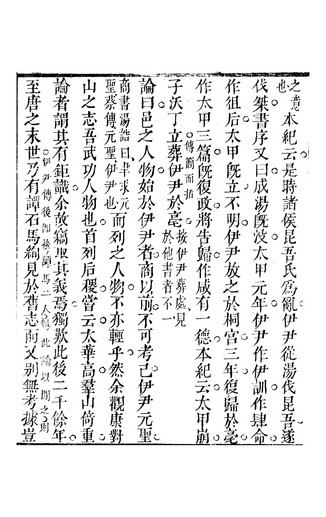 之責也本紀云是時諸侯昆吾氏為亂伊尹從湯伐昆吾遂
伐桀書序又曰成湯旣沒太甲元年伊尹作伊訓作肆命
作徂后太甲旣立不明伊尹放之於桐宮三年復歸於亳
作太甲三篇旣復政將告歸作咸有一德本紀云太甲崩
子沃丁立葬伊尹於亳按伊尹葬處見於他書者不一
論曰邑之人物始於伊尹者商以前不可考已伊尹元聖
商書湯誥曰聿求元聖蔡傳元聖伊尹也而列之人物不亦輕乎然余觀康對
山之志吾武功人物也首列后稷嘗云太華高羣山倚重
論者謂其有鉅識余故竊取其義焉獨歎此後二千餘年
至唐之末世乃有譚石馬絢見於舊志而又別無考據豈